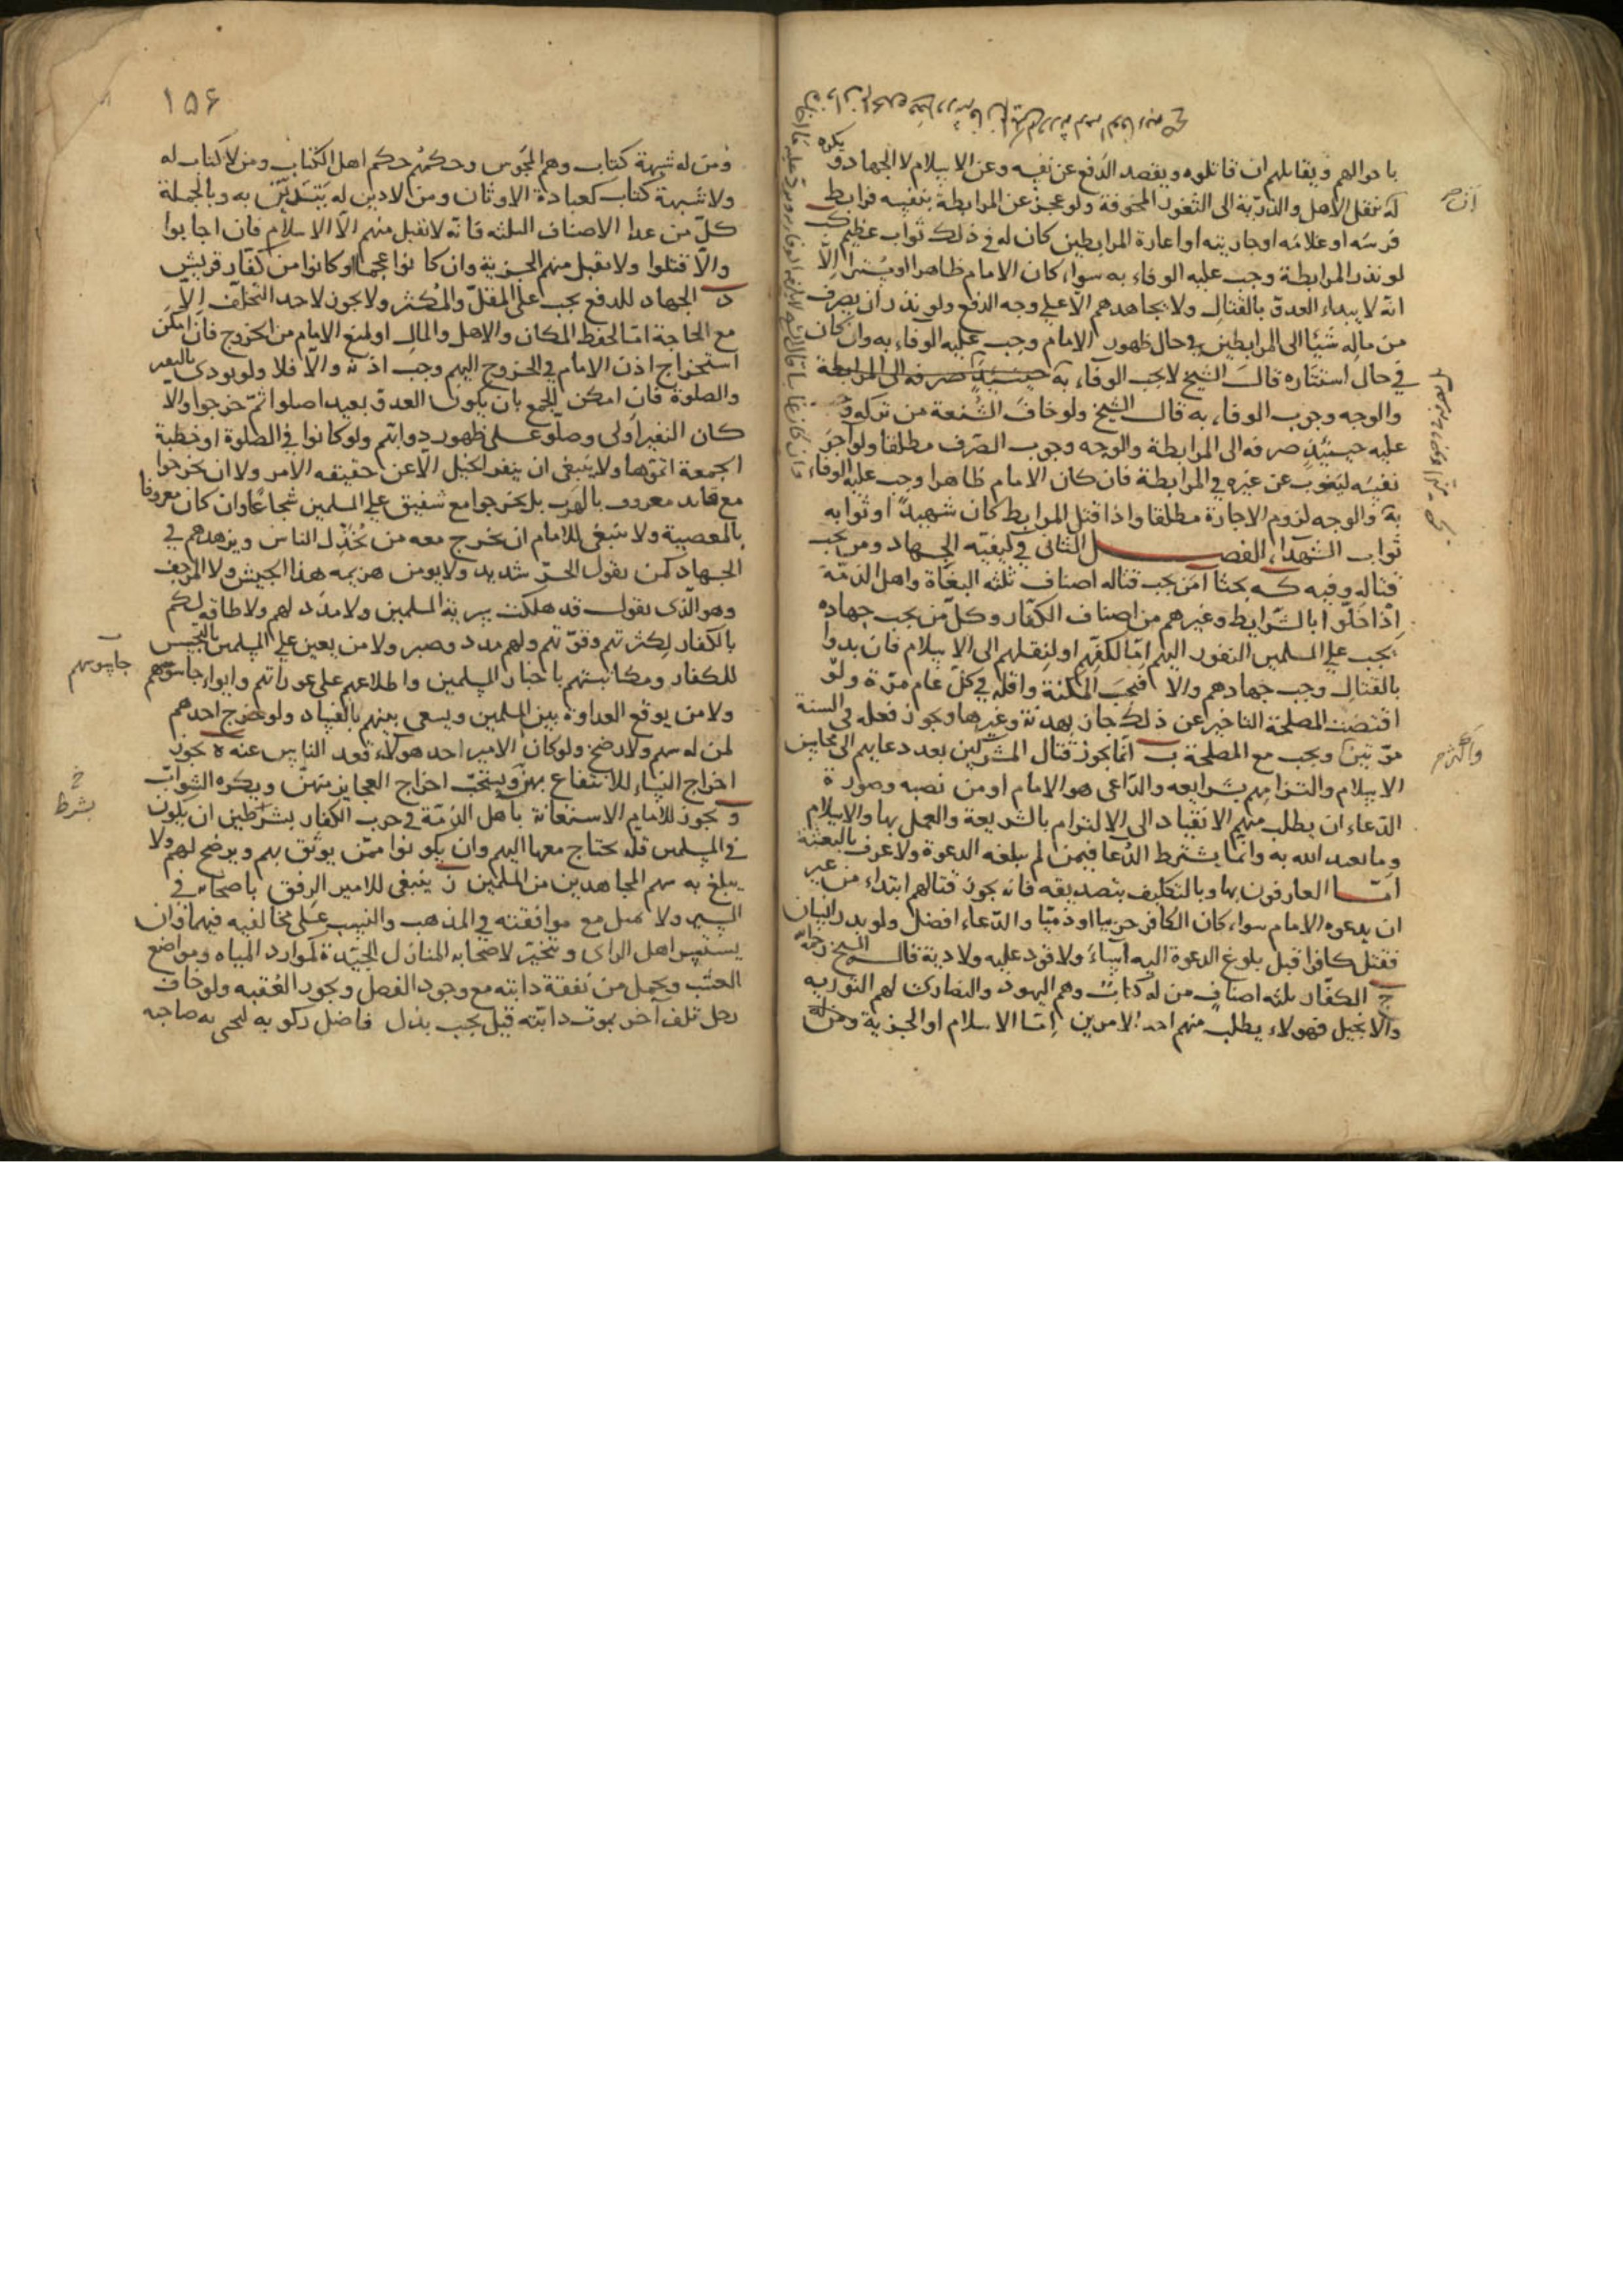 باحوالهم ويقاتلهم ان قاتلوه ويقصد الدفع عن نفسه وعن الاسلام لا الجهاد و يكره
له نقل الاهل والذرية الى الثغور المخوفة ولو عجز عن المرابطة بنفسه فرابط
فرسه او غلامه او جاريته او اعارة المرابطين كان له في ذلك ثواب عظيم ك
لو نذر المرابطة وجب عليه الوفاء به سواء كان الامام ظاهرا او مستترا الا
انه لا يبداء العدو بالقتال ولا يجاهدهم الا على وجه الدفع ولو نذر ان يصرف
من ماله شيئا الى المرابطين في حال ظهور الامام وجب عليه الوفاء به وان كان
في حال استتاره قال الشيخ لا يجب الوفاء به حينئذ صرفه الى المرابطة
والوجه وجوب الوفاء به قال الشيخ ولو خاف الشنعة من تركه وجب
عليه حينئذ صرفه الى المرابطة والوجه وجوب الصرف مطلقا ولو آجر
نفسه لينوب عن غيره في المرابطة فان كان الامام ظاهرا وجب عليه الوفاء
به والوجه لزوم الاجارة مطلقا واذا قتل المرابط كان شهيدا وثوابه
ثواب الشهداء الفصل الثاني في كيفية الجهاد ومن يجب
قتاله وفيه كه بحثا ا من يجب قتاله اصناف ثلثه البغاة واهل الذمة
اذا اخلوا بالشرايط وغيرهم من اصناف الكفار وكل من يجب جهاده
يجب على المسلمين النفور اليهم اما لكفهم او لنقلهم الى الاسلام فان بدوا
بالقتال وجب جهادهم والا فبحسب المكنة واقله في كل عام مرة ولو
اقتضت المصلحة التاخير عن ذلك جاز بهدنة وغيرها ويجوز فعله في السنة
مرتين ويجب مع المصلحة ب انما يجوز قتال المشركين بعد دعايهم الى محاسن
الاسلام والتزامهم بشرايعه والداعي هو الامام او من نصبه وصورة
الدعاء ان يطلب منهم الانقياد الى الالتزام بالشريعة والعمل بها والاسلام
وما تعبد الله به وانما يشترط الدعا فيمن لم يبلغه الدعوة ولا عرف بالبعثة
اما العارفون بها وبالتكليف بتصديقه فانه يجوز قتالهم ابتداء من غير
ان يدعوه الامام سواء كان الكافر حربيا او ذميا والدعاء افضل ولو بدر انسان
فقتل كافرا قبل بلوغ الدعوة اليه اساء ولا قود عليه ولا دية قاله الشيخ رحمه
ج الكفار ثلثه اصناف من له كتاب وهم اليهود والنصارى لهم التوريه
والانجيل فهولاء يطلب منهم احد الامرين اما الاسلام او الجزية ومن له
واكثره
١٥۶
ومن له شبهة كتاب وهم المجوس وحكمهم حكم اهل الكتاب ومن لا كتاب له
ولا شبهة كتاب كعبادة الاوثان ومن لا دين له يتدين به وبالجملة
كل من عدا الاصناف الثلثه فانه لا يقبل منهم الا الاسلام فان اجابوا
والا قتلوا ولا يقبل منهم الجزية وان كانوا عجما او كانوا من كفار قريش
د الجهاد للدفع يجب على المقل والمكثر ولا يجوز لاحد التخلف الا
مع الحاجة اما لحفظ المكان والاهل والمال او لمنع الامام من الخروج فان امكن
استخراج اذن الامام في الخروج اليهم وجب اذنه والا فلا ولو نودي بالنفير
والصلوة فان امكن الجمع بان يكون العدو بعيدا صلوا ثم خرجوا والا
كان النفير اولى وصلوا على ظهور دوابهم ولو كانوا في الصلوة او خطبة
الجمعة اتموها ولا ينبغي ان ينفر الخيل الا عن حقيقه الامر ولا ان يخرجوا
مع قايد معروف بالهرب بل يخرجوا مع شفيق على المسلمين شجاعا وان كان معروفا
بالمعصية ولا ينبغي للامام ان يخرج معه من يخذل الناس ويزهدهم في
الجهاد كمن يقول الحر شديد ولا يومن هزيمه هذا الجيش ولا المرجف
وهو الذي يقول قد هلكت سرية المسلمين ولا مدد لهم ولا طاقه لكم
بالكفار لكثرتهم وقوتهم ولهم مدد وصبر ولا من يعين على المسلمين بالتجسس
للكفار ومكاتبتهم باخبار المسلمين واطلاعهم على عوراتهم وايواء جاسوسهم
ولا من يوقع العداوة بين المسلمين ويسعى بينهم بالفساد ولو خرج احدهم
لمن له سهم ولا رضخ ولو كان الامير احد هولاء قعد الناس عنه ه يجوز
اخراج النساء للانتفاع بهن ويستحب اخراج العجايز منهن ويكره الشواب
و يجوز للامام الاستعانة باهل الذمة في حرب الكفار بشرطين ان يكون
في المسلمين قلة يحتاج معها اليهم وان يكونوا ممن يوثق بهم ويرضخ لهم ولا
يبلغ به سهم المجاهدين من المسلمين ز ينبغي للامير الرفق باصحابه في
السير ولا يميل مع موافقته في المذهب والنسب على مخالفيه فيهما وان
يستشير اهل الراي و يتخير لاصحابه المنازل الجيدة كموارد المياه ومواضع
العشب ويحمل من نفقة دابته مع وجود الفضل ويجوز العقبه ولو خاف
رجل تلف آخر بموت دابته قيل يجب بذل فاضل ركوبه ليحيى به صاحبه
جاسوسهم
بشرط